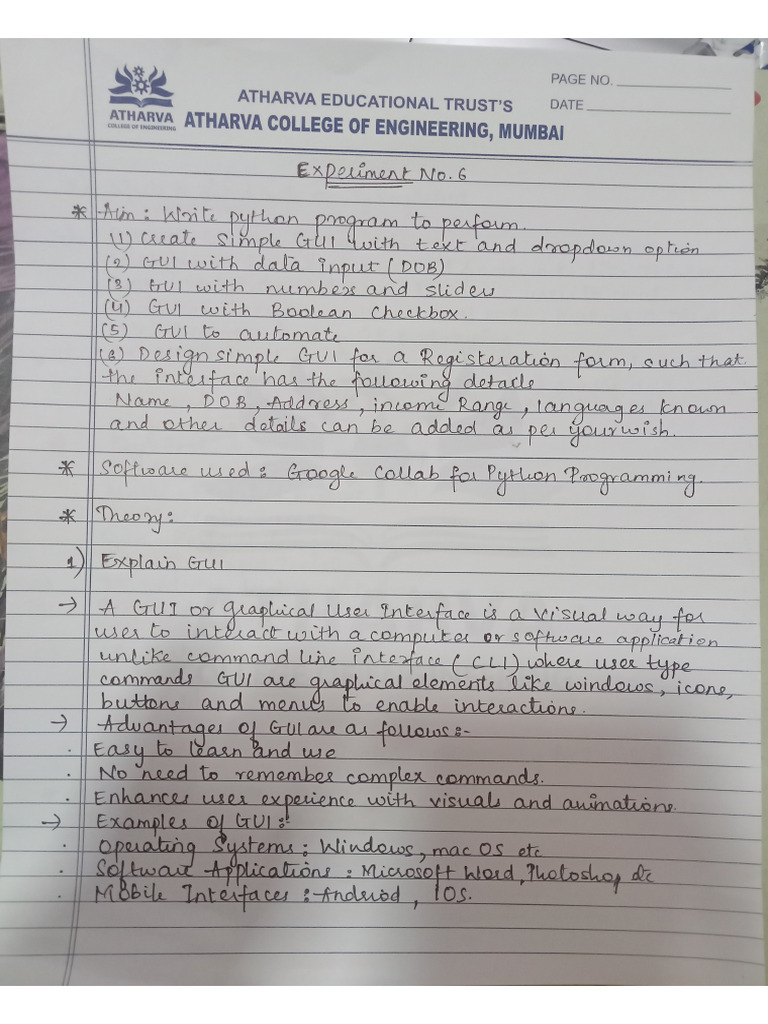 PAGE NO.
ATHARVA EDUCATIONAL TRUST'S DATE
ATHARVA
COLLEGE OF ENGINEERING
ATHARVA COLLEGE OF ENGINEERING, MUMBAI
Experiment No. 6
* Aim : Write python program to perform.
(1) Create simple GUI with text and dropdown option
(2) GUI with data input (DOB)
(3) GUI with numbers and slider
(4) GUI with Boolean Checkbox.
(5) GUI to automate
(6) Design simple GUI for a Registeration form, such that
the interface has the following details
Name, DOB, Address, income Range, languages known
and other details can be added as per your wish.
* Software used : Google Collab for Python Programming.
* Theory :
1) Explain GUI
→ A GUI or graphical User Interface is a visual way for
user to interact with a computer or software application
unlike command line interface (CLI) where user type
commands GUI are graphical elements like windows, icons,
buttons and menus to enable interactions.
→ Advantages of GUI are as follows :-
· Easy to learn and use
· No need to remember complex commands.
· Enhances user experience with visuals and animations.
→ Examples of GUI :-
· Operating Systems : Windows, mac OS etc
· Software Applications : Microsoft Word, Photoshop etc
· Mobile Interfaces :- Andriod, IOS.